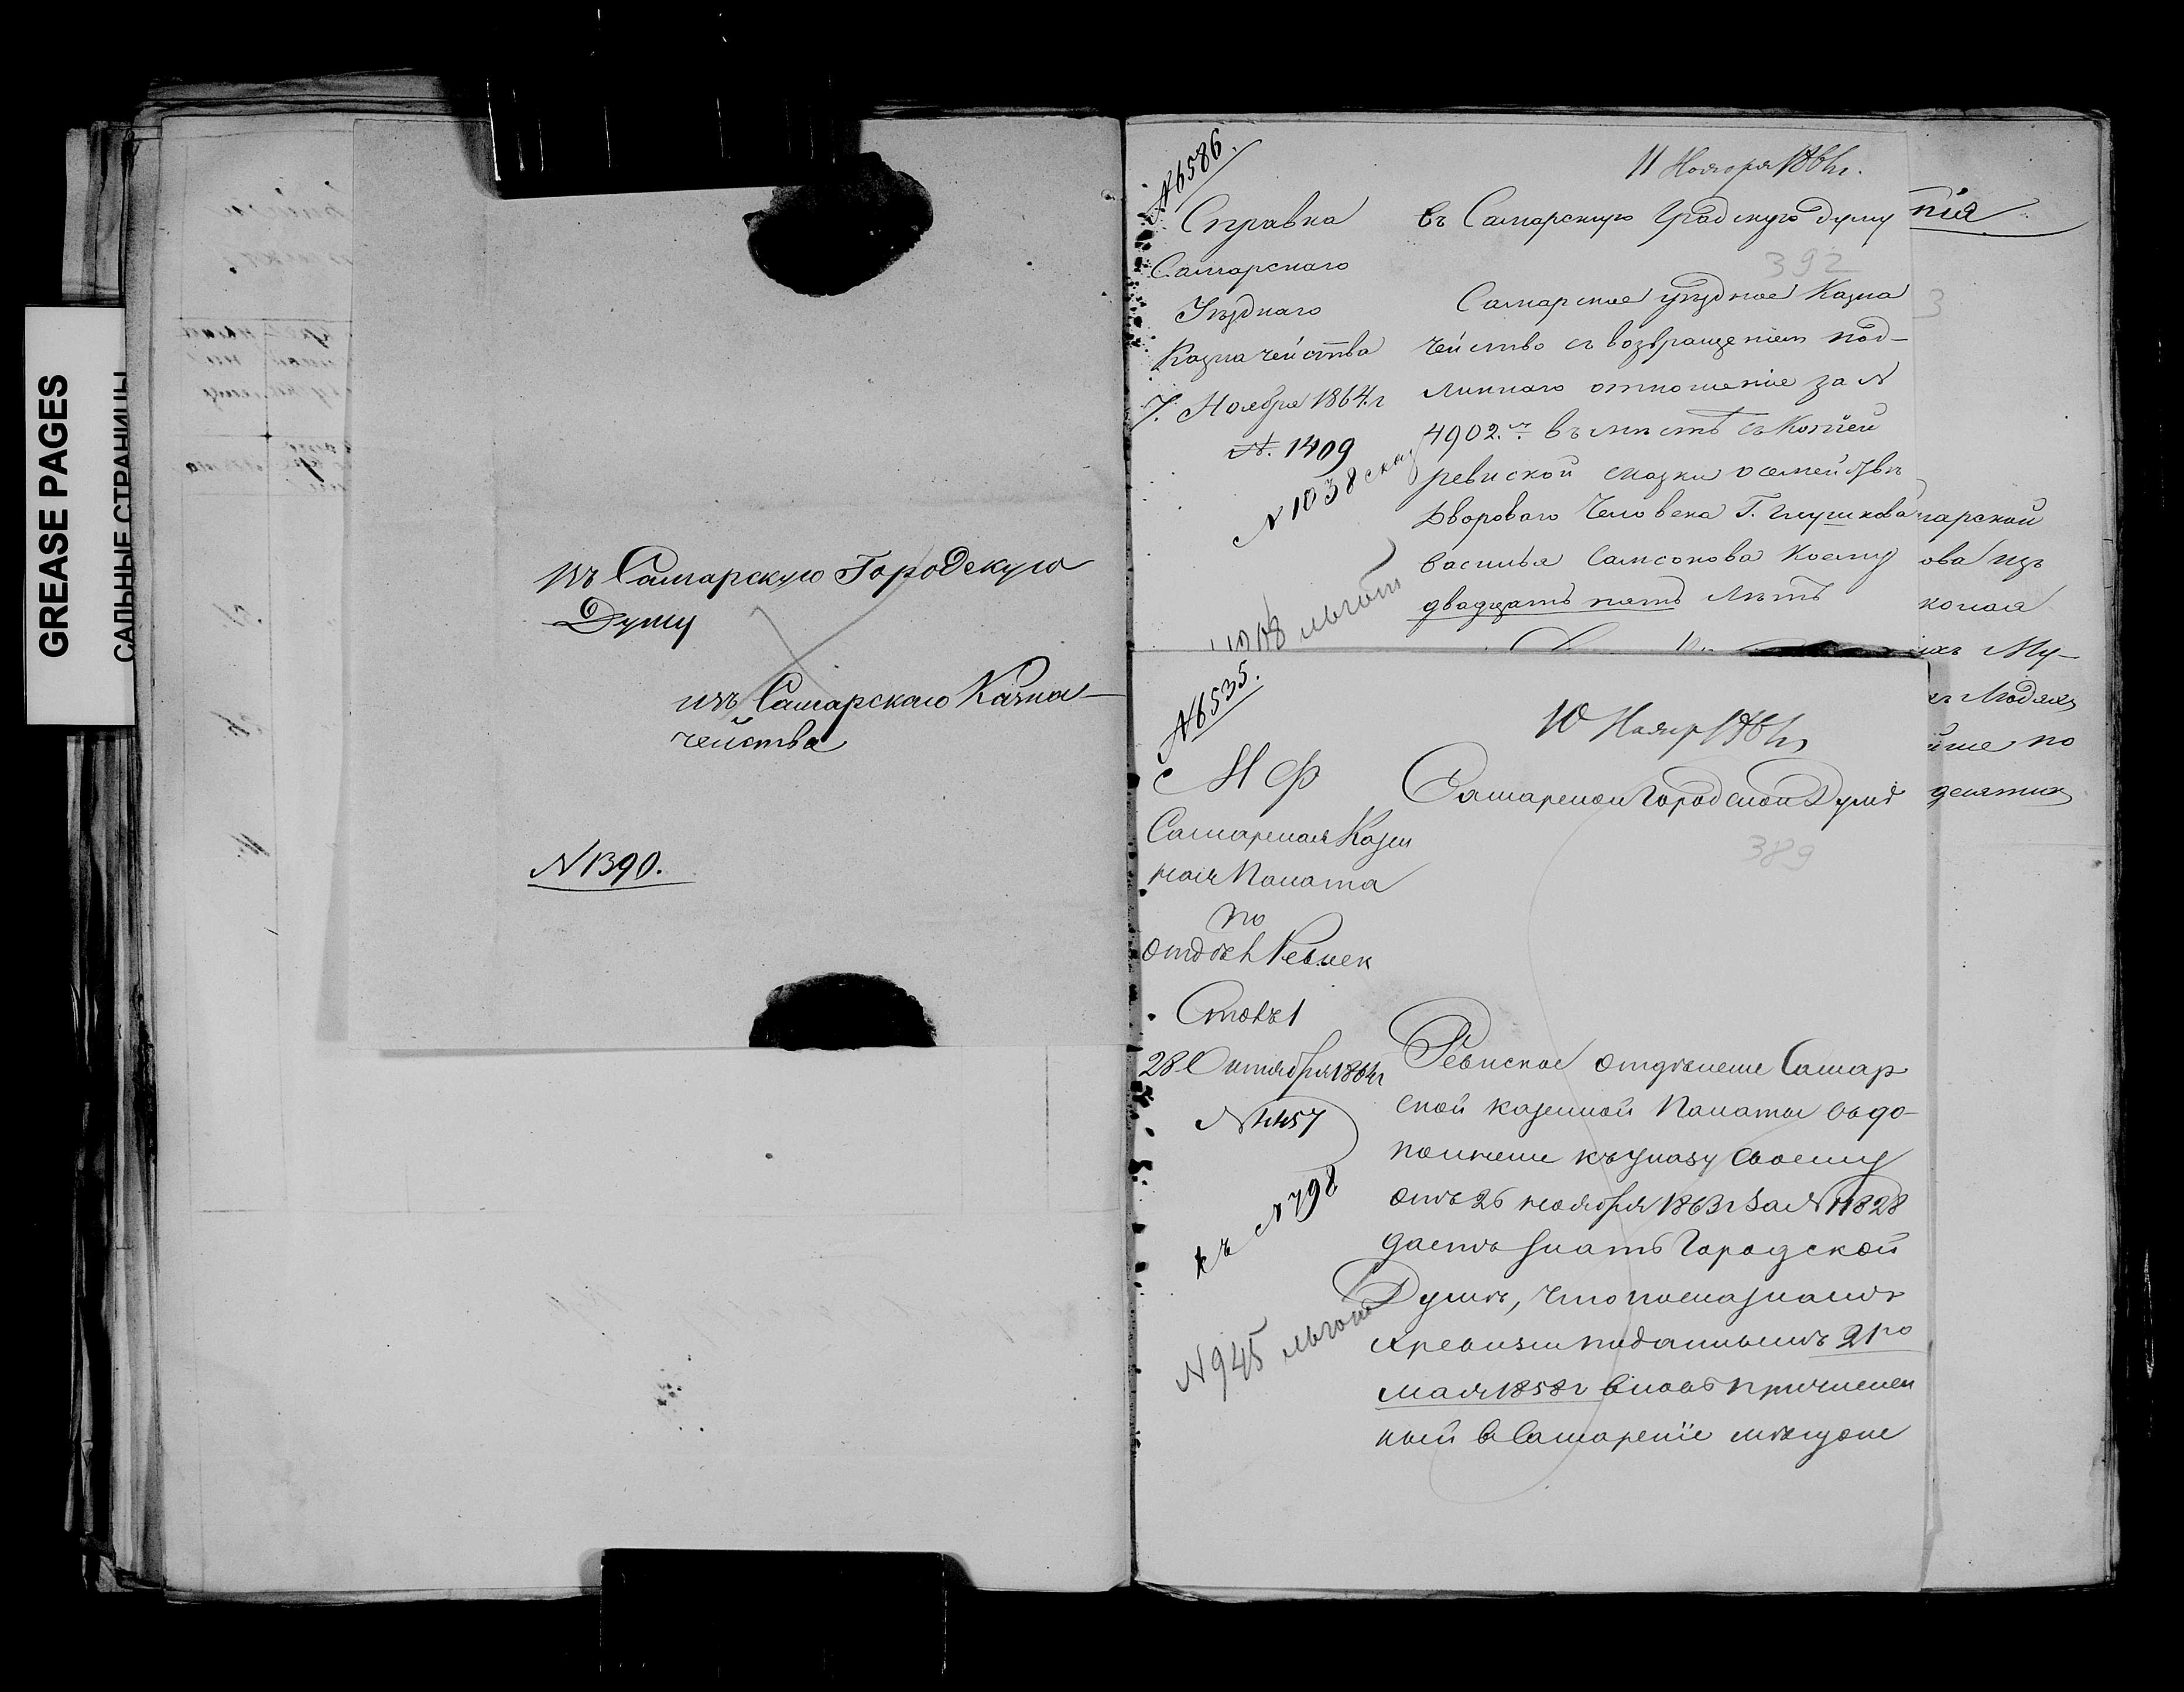 GREASE PAGES
САЛЬНЫЕ СТРАНИЦЫ
въ Самарскую Городскую
Думу
изъ Самарскаго Казна-
чейства
N 1390.
№ 6586.
11 Ноября 1864 г.
Справка
Самарскаго
Уѣзднаго
Казначейства
7. Ноября 1864. г
№. 1409
N 1038
въ Самарскую Градскую думу
392
Самарское уѣздное Казна
чейство съ возвращеніемъ под-
линнаго отношеніе за №
4902. въ мѣстѣ съ Копіей
ревиской сказки о семействѣ
Двороваго Человека Г. Глушкова
Василья Самсонова коему
двадцать пять лѣтъ
льгот
пія
3
марской
ова изъ
хъ Му-
Людяхъ
по
десятин
№ 6535.
10 Ноябр 1864 г
М Ф
Самарская Казен
ная Палата
по
отдѣл Ревиск
Столъ 1
28 Октября 1864 г
№ 4457
къ № 798
N 945 льгот
Самарской Городской Думѣ
389
Ревиское отдѣление Самар
ской казенной Палаты въ до-
полнение къ указу своему
отъ 26 ноября 1863 г за № 11828
даетъ знать Городской
Думѣ, что по сказкамъ
X ревизии поданнымъ 21го
мая 1858 г вновь причислен
ный в Самарскіе мѣщане